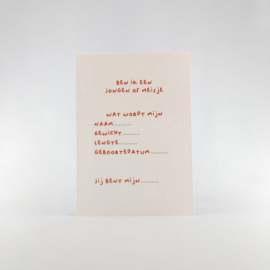 BEN IK EEN
JONGEN OF MEISJE
WAT WORDT MIJN
NAAM..........
GEWICHT..........
LENGTE..........
GEBOORTEDATUM..........
JIJ BENT MIJN..........